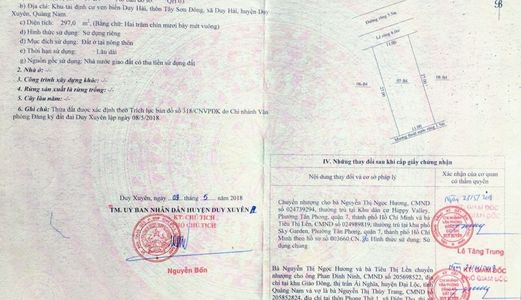 b) Địa chỉ: Khu tái định cư ven biển Duy Hải, thôn Tây Sơn Đông, xã Duy Hải, huyện Duy
Xuyên, Quảng Nam.
c) Diện tích: 297,0 m², (Bằng chữ: Hai trăm chín mươi bảy mét vuông)
d) Hình thức sử dụng: Sử dụng riêng
đ) Mục đích sử dụng: Đất ở tại nông thôn
e) Thời hạn sử dụng: Lâu dài
g) Nguồn gốc sử dụng: Nhà nước giao đất có thu tiền sử dụng đất
2. Nhà ở: -/-
3. Công trình xây dựng khác: -/-
4. Rừng sản xuất là rừng trồng: -/-
5. Cây lâu năm: -/-
6. Ghi chú: Thửa đất được xác định theo Trích lục bản đồ số 318/CNVPĐK do Chi nhánh Văn
phòng Đăng ký đất đai Duy Xuyên lập ngày 08/5/2018.
Duy Xuyên, ngày 09 tháng 5 năm 2018
TM. ỦY BAN NHÂN DÂN HUYỆN DUY XUYÊN
KT. CHỦ TỊCH
PHÓ CHỦ TỊCH
Nguyễn Bốn
IV. Những thay đổi sau khi cấp giấy chứng nhận
Nội dung thay đổi và cơ sở pháp lý
Xác nhận của cơ quan
có thẩm quyền
Chuyển nhượng cho bà Nguyễn Thị Ngọc Hương, CMND
số 024739294, thường trú tại Khu dân cư Happy Valley,
Phường Tân Phong, quận 7, thành phố Hồ Chí Minh và bà
Tiêu Thị Lên, CMND số 024989819, thường trú tại khu phố
Sky Garden, Phường Tân Phong, quận 7, thành phố Hồ Chí
Minh theo hồ sơ số 003660.CN. Hình thức sử dụng: Sử
dụng chung
Lê Tăng Trung
Bà Nguyễn Thị Ngọc Hương và bà Tiêu Thị Lên chuyển
nhượng cho ông Phan Đình Ninh, CMND số 205698522, địa
chỉ tại khu Giao Đông, thị trấn Ái Nghĩa, huyện Đại Lộc, tỉnh
Quảng Nam và vợ là Nguyễn Thị Thùy Trang, CMND số